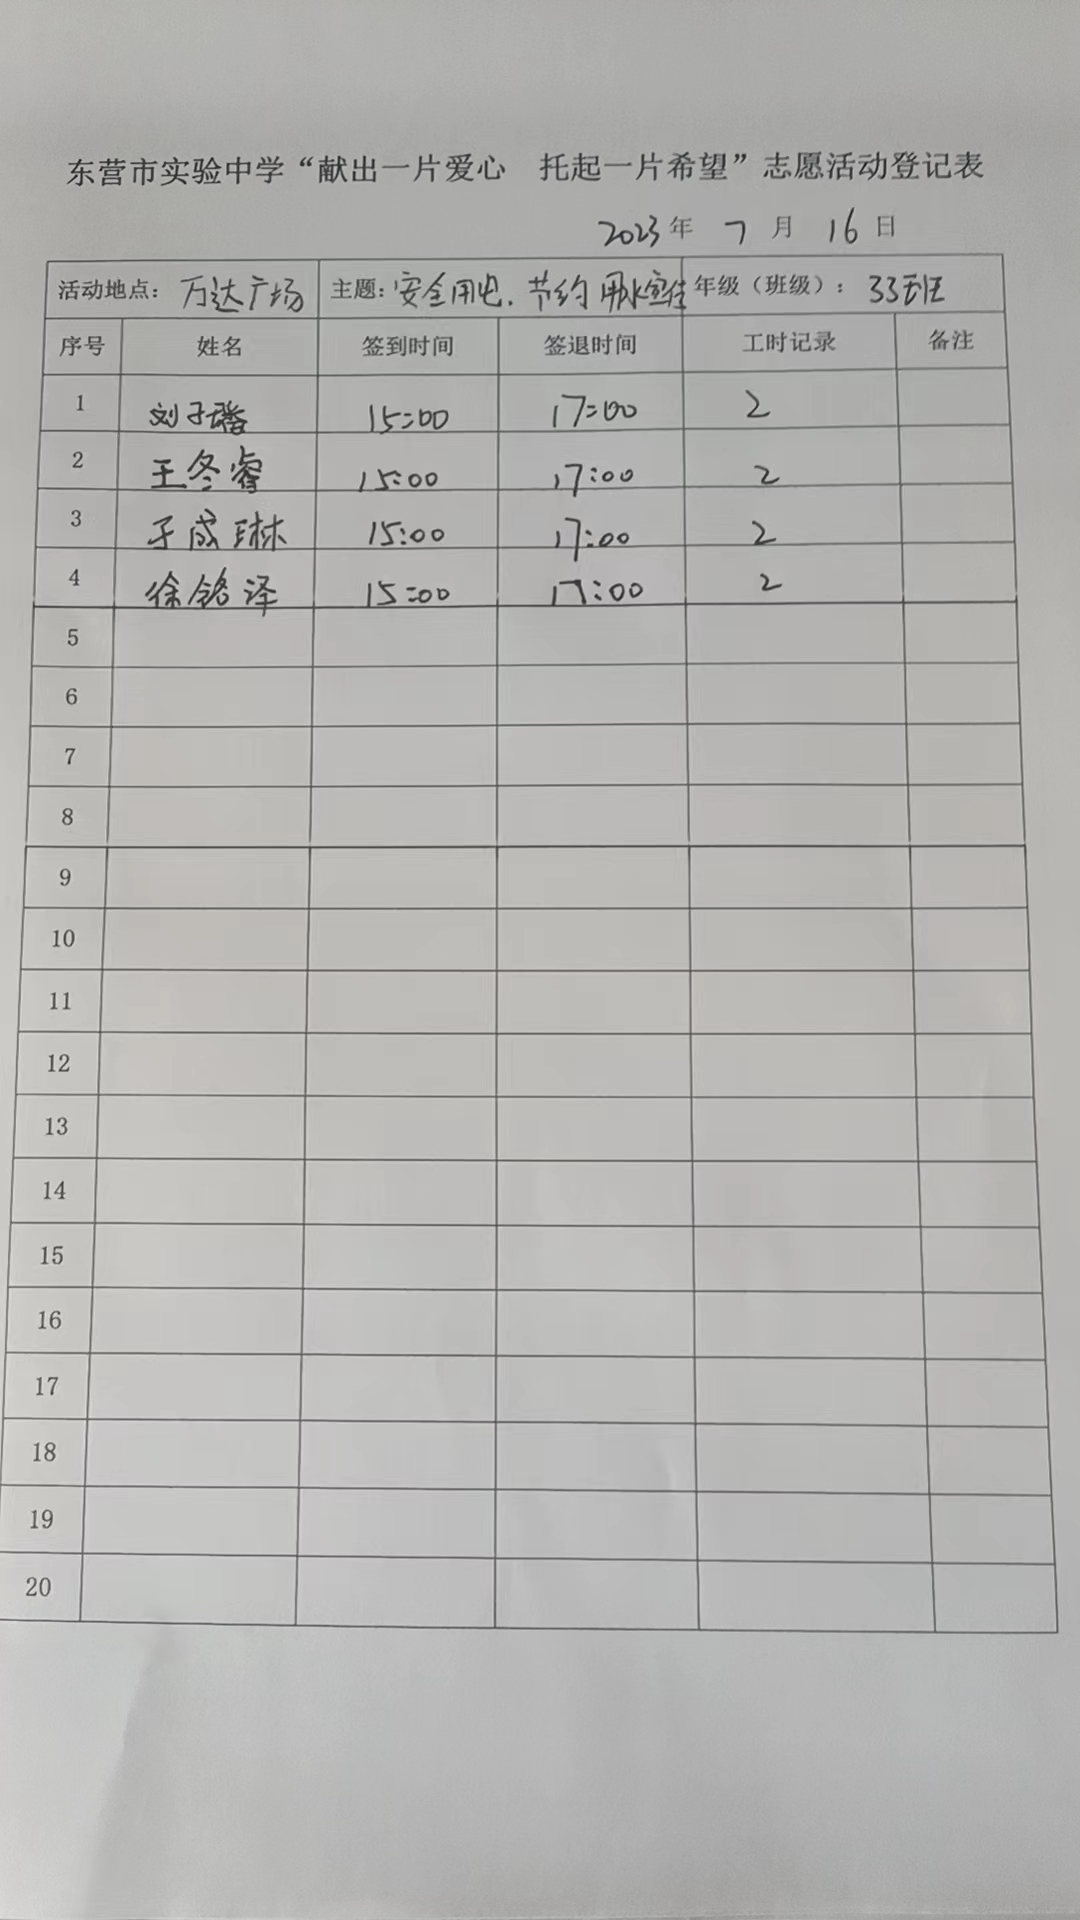 东营市实验中学“献出一片爱心　托起一片希望”志愿活动登记表
2023年 7 月 16日
活动地点：万达广场 主题：安全用电.节约用水宣传 年级（班级）：33班
序号 姓名 签到时间 签退时间 工时记录 备注
1 刘子璠 15:00 17:00 2
2 王冬睿 15:00 17:00 2
3 于成琳 15:00 17:00 2
4 徐铭泽 15:00 17:00 2
5
6
7
8
9
10
11
12
13
14
15
16
17
18
19
20